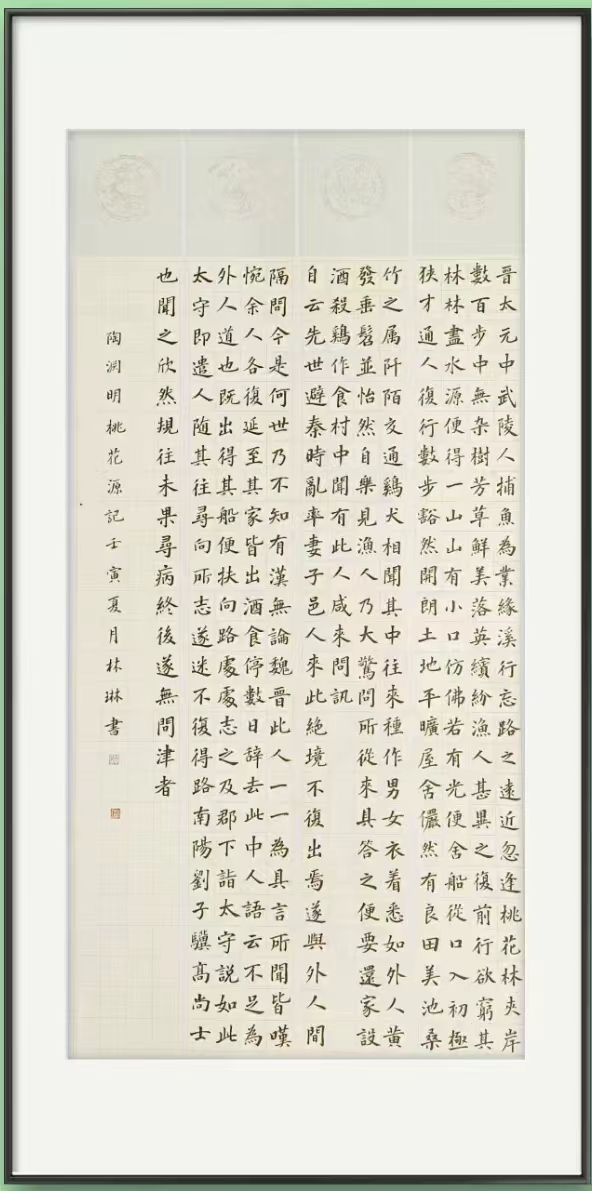 晋太元中武陵人捕魚為業緣溪行忘路之遠近忽逢桃花林夾岸
數百步中無杂樹芳草鮮美落英繽紛漁人甚異之復前行欲窮其
林林盡水源便得一山山有小口仿佛若有光便舍船從口入初極
狹才通人復行數步豁然開朗土地平曠屋舍儼然有良田美池桑
竹之属阡陌交通鷄犬相聞其中往來種作男女衣着悉如外人黃
發垂髫並怡然自樂見漁人乃大驚問所從來具答之便要還家設
酒殺鷄作食村中聞有此人咸來問訊
自云先世避秦時亂率妻子邑人來此絶境不復出焉遂與外人間
隔問今是何世乃不知有漢無論魏晋此人一一為具言所聞皆嘆
惋余人各復延至其家皆出酒食停數日辞去此中人語云不足為
外人道也既出得其船便扶向路處處志之及郡下詣太守説如此
太守即遣人随其往尋向所志遂迷不復得路南陽劉子驥髙尚士
也聞之欣然規往未果尋病終後遂無問津者
陶渊明桃花源記壬寅夏月林琳書